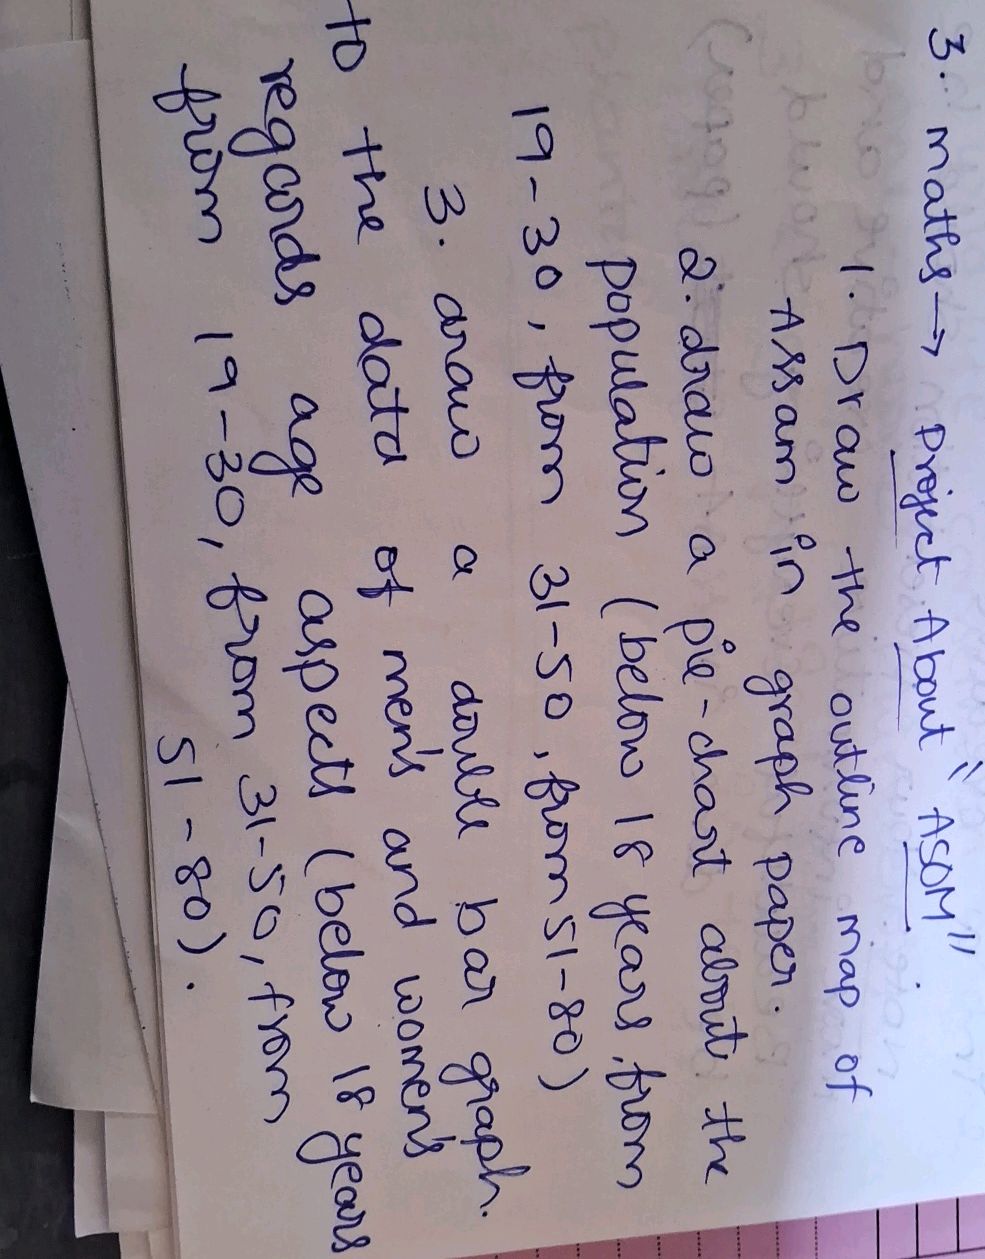 3. maths → Project About "ASOM".
1. Draw the outline map of
Assam in graph paper.
2. draw a pie-chart about the
population (below 18 years, from
19-30, from 31-50, from 51-80)
3. draw a double bar graph.
to the data of men's and women's
regards age aspects (below 18 years
from 19-30, from 31-50, from
51-80).